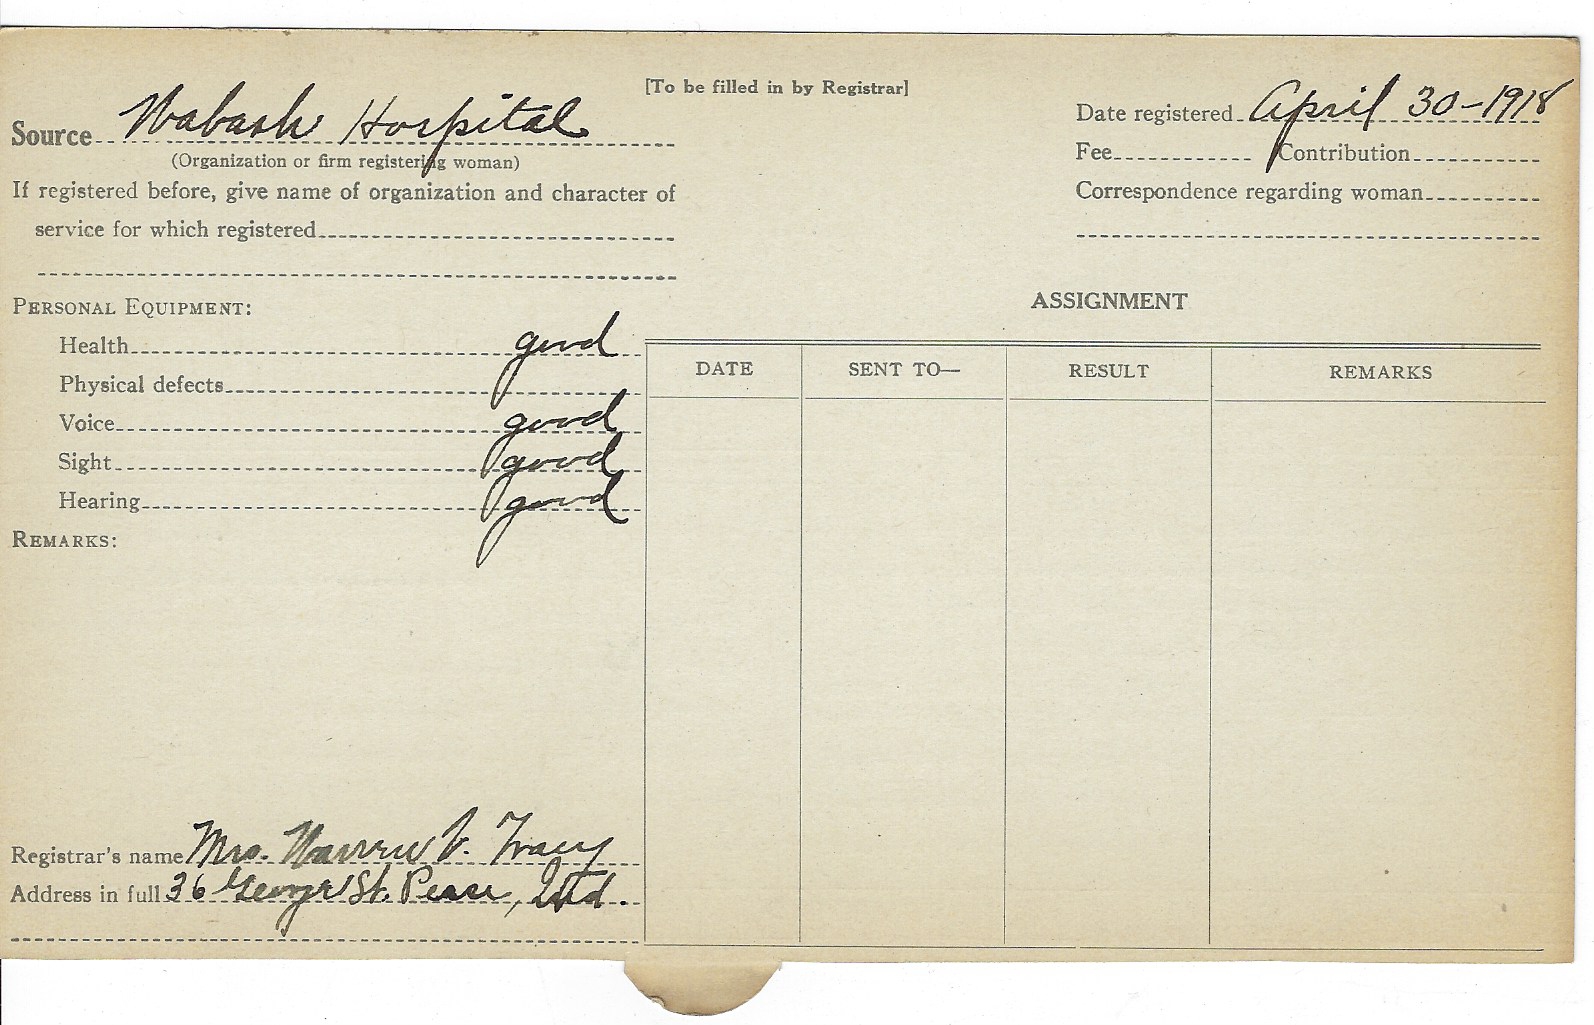 [To be filled in by Registrar]
Source Wabash Hospital
(Organization or firm registering woman)
If registered before, give name of organization and character of
service for which registered
Date registered April 30-1918
Fee Contribution
Correspondence regarding woman
PERSONAL EQUIPMENT:
Health good
Physical defects
Voice good
Sight good
Hearing good
REMARKS:
Registrar's name Mrs. Warren V. Tracy
Address in full 36 George St. Peru, Ind.
ASSIGNMENT
DATE SENT TO— RESULT REMARKS